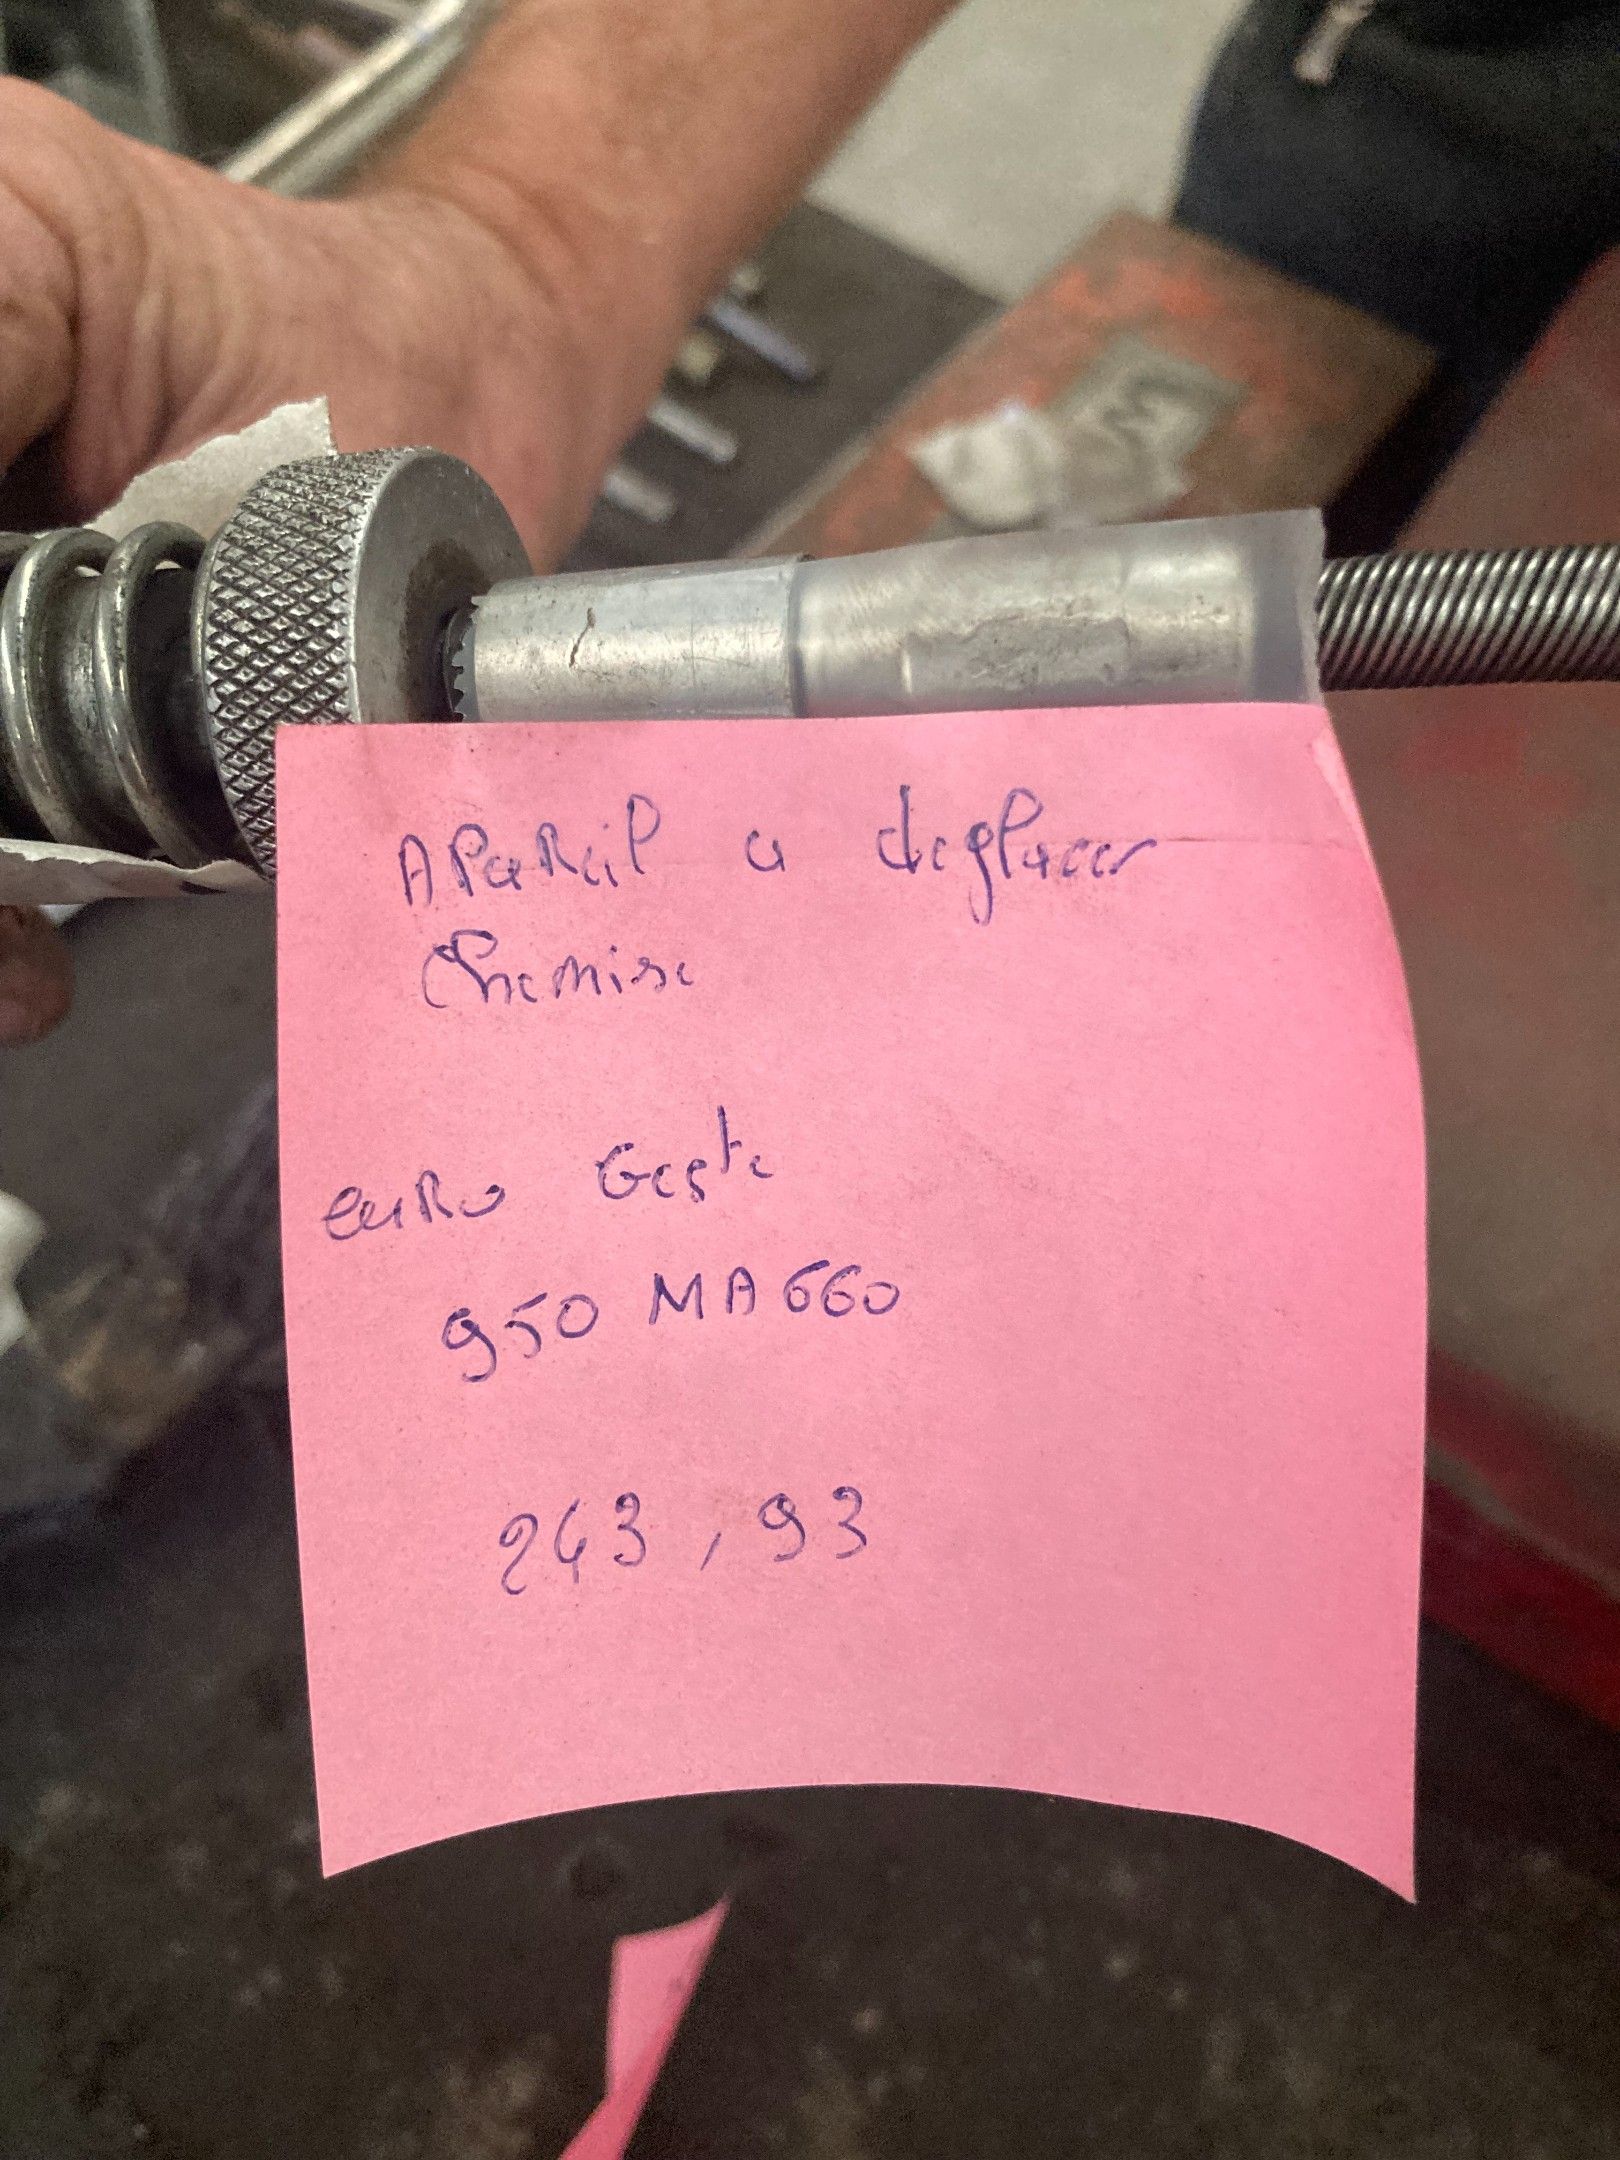 APaReil a deglacer
Chemise
euRo Geste
950 MA660
243,93